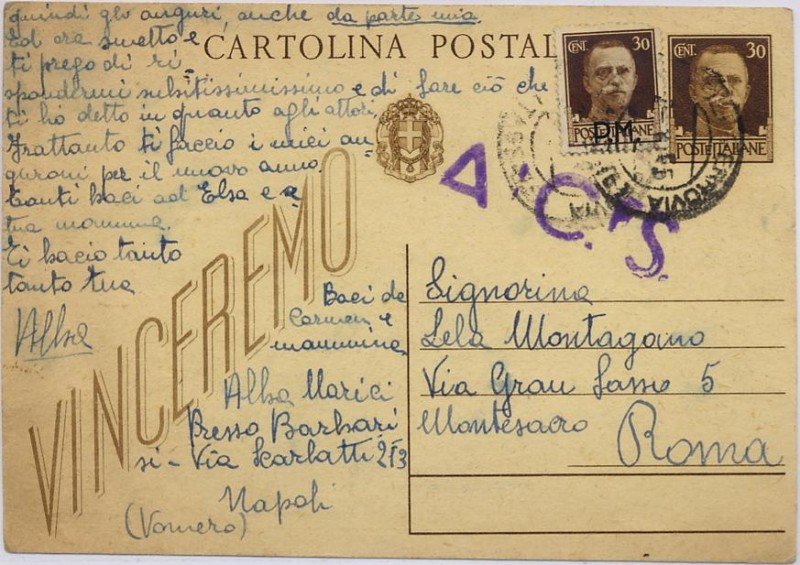 quindi gli auguri, anche da parte mia.
Ed ora smetto e
ti prego di ri-
spondermi subitissimissimo e di fare ciò che
ti ho detto in quanto agli attori.
Frattanto ti faccio i miei au-
guroni per il nuovo anno.
Tanti baci ad Elsa e a
tua mamma.
Ti bacio tanto
tanto tua
Alba
CARTOLINA POSTAL
CENT. 30
POSTE ITALIANE
P.M.
CENT. 30
POSTE ITALIANE
FERROVIA
A.C.S.
VINCEREMO
Baci da
Carmen e
mammina
Alba Marici
Presso Barbari
si - Via Scarlatti 213
Napoli
(Vomero)
Signorina
Lela Montagano
Via Gran Sasso 5
Montesacro
Roma